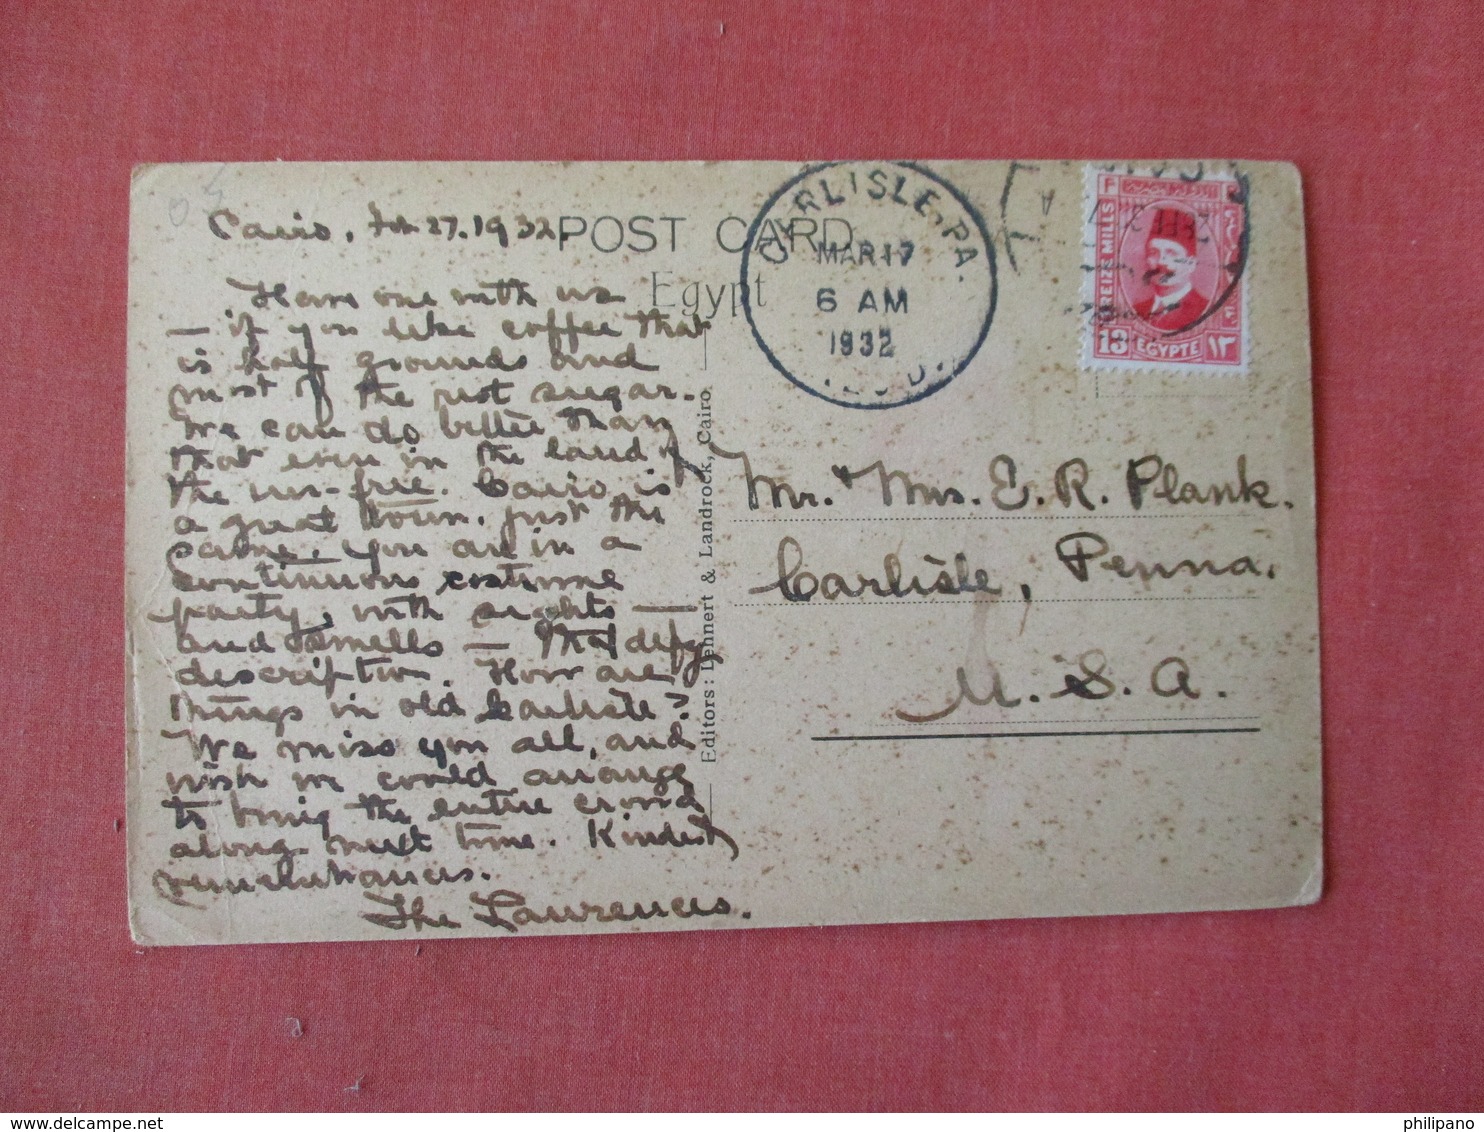 Cairo, Feb. 27. 1932.
POST CARD
Egypt
Have one with us
— if you like coffee that
is half grounds and
most of the rest sugar.
We can do better than
that even in the land of
the un-free. Cairo is
a great town, just the
same. You are in a
continuous costume
party, with sights —
and smells — that defy
description. How are
things in old Carlisle?
We miss you all, and
wish we could arrange
to bring the entire crowd
along next time. Kindest
remembrances.
The Lawrences.
Editors: Lehnert & Landrock, Cairo
CARLISLE, PA.
MAR 17
6 AM
1932
POSTES
13 MILLS
EGYPTE ١٣
Mr. & Mrs. E. R. Plank.
Carlisle, Penna.
U. S. A.
philipano